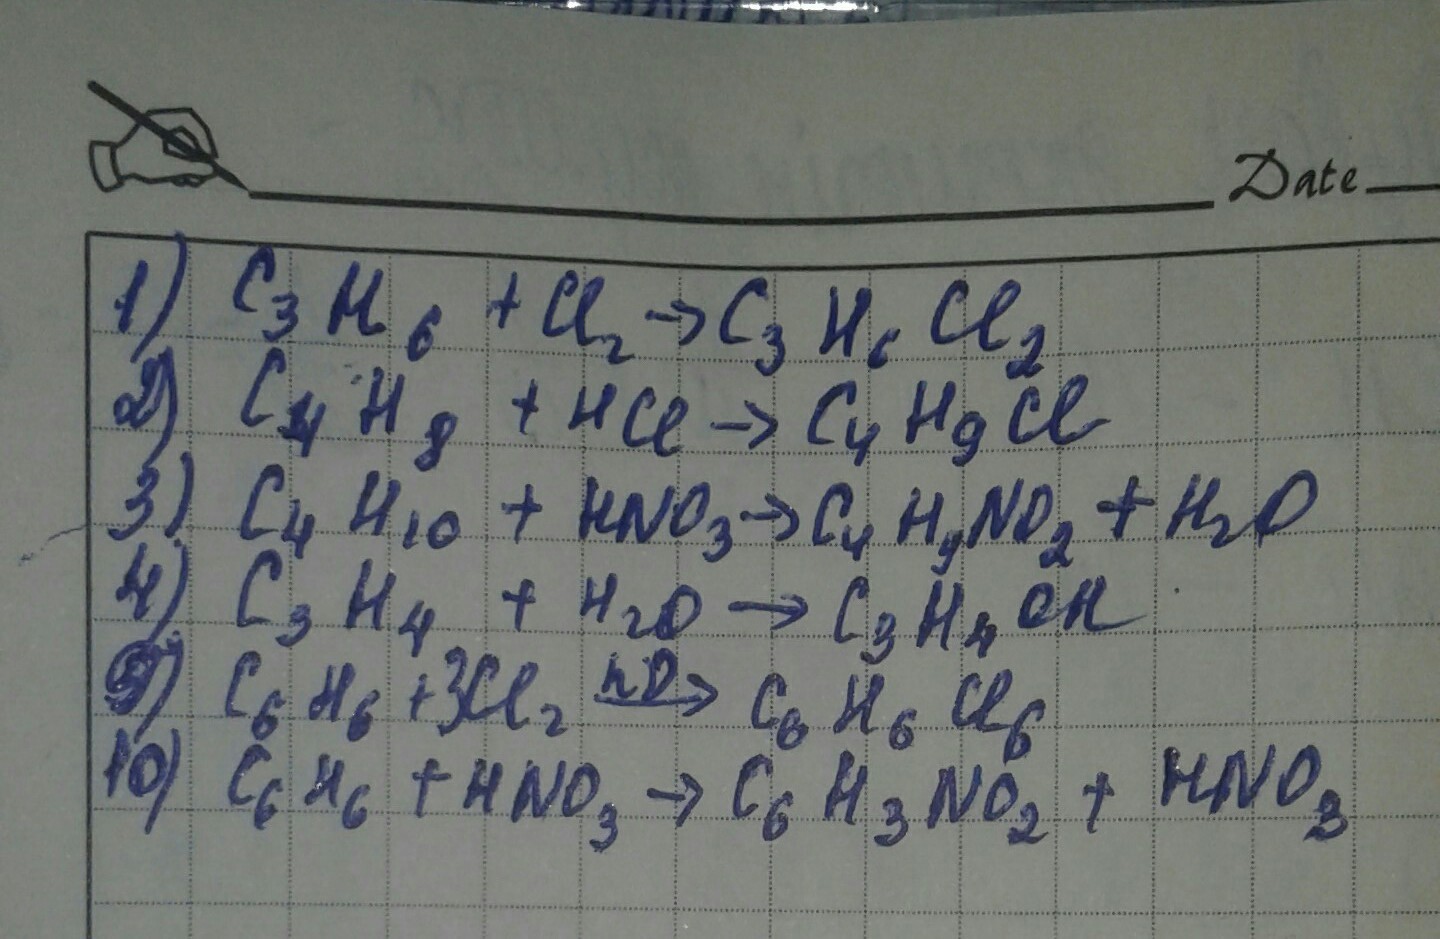 Date
1) C₃H₆ + Cl₂ → C₃H₆Cl₂
2) C₄H₈ + HCl → C₄H₉Cl
3) C₄H₁₀ + HNO₃ → C₄H₉NO₂ + H₂O
4) C₃H₄ + H₂O → C₃H₄OH
9) C₆H₆ + 3Cl₂ → C₆H₆Cl₆
10) C₆H₆ + HNO₃ → C₆H₃NO₂ + HNO₃